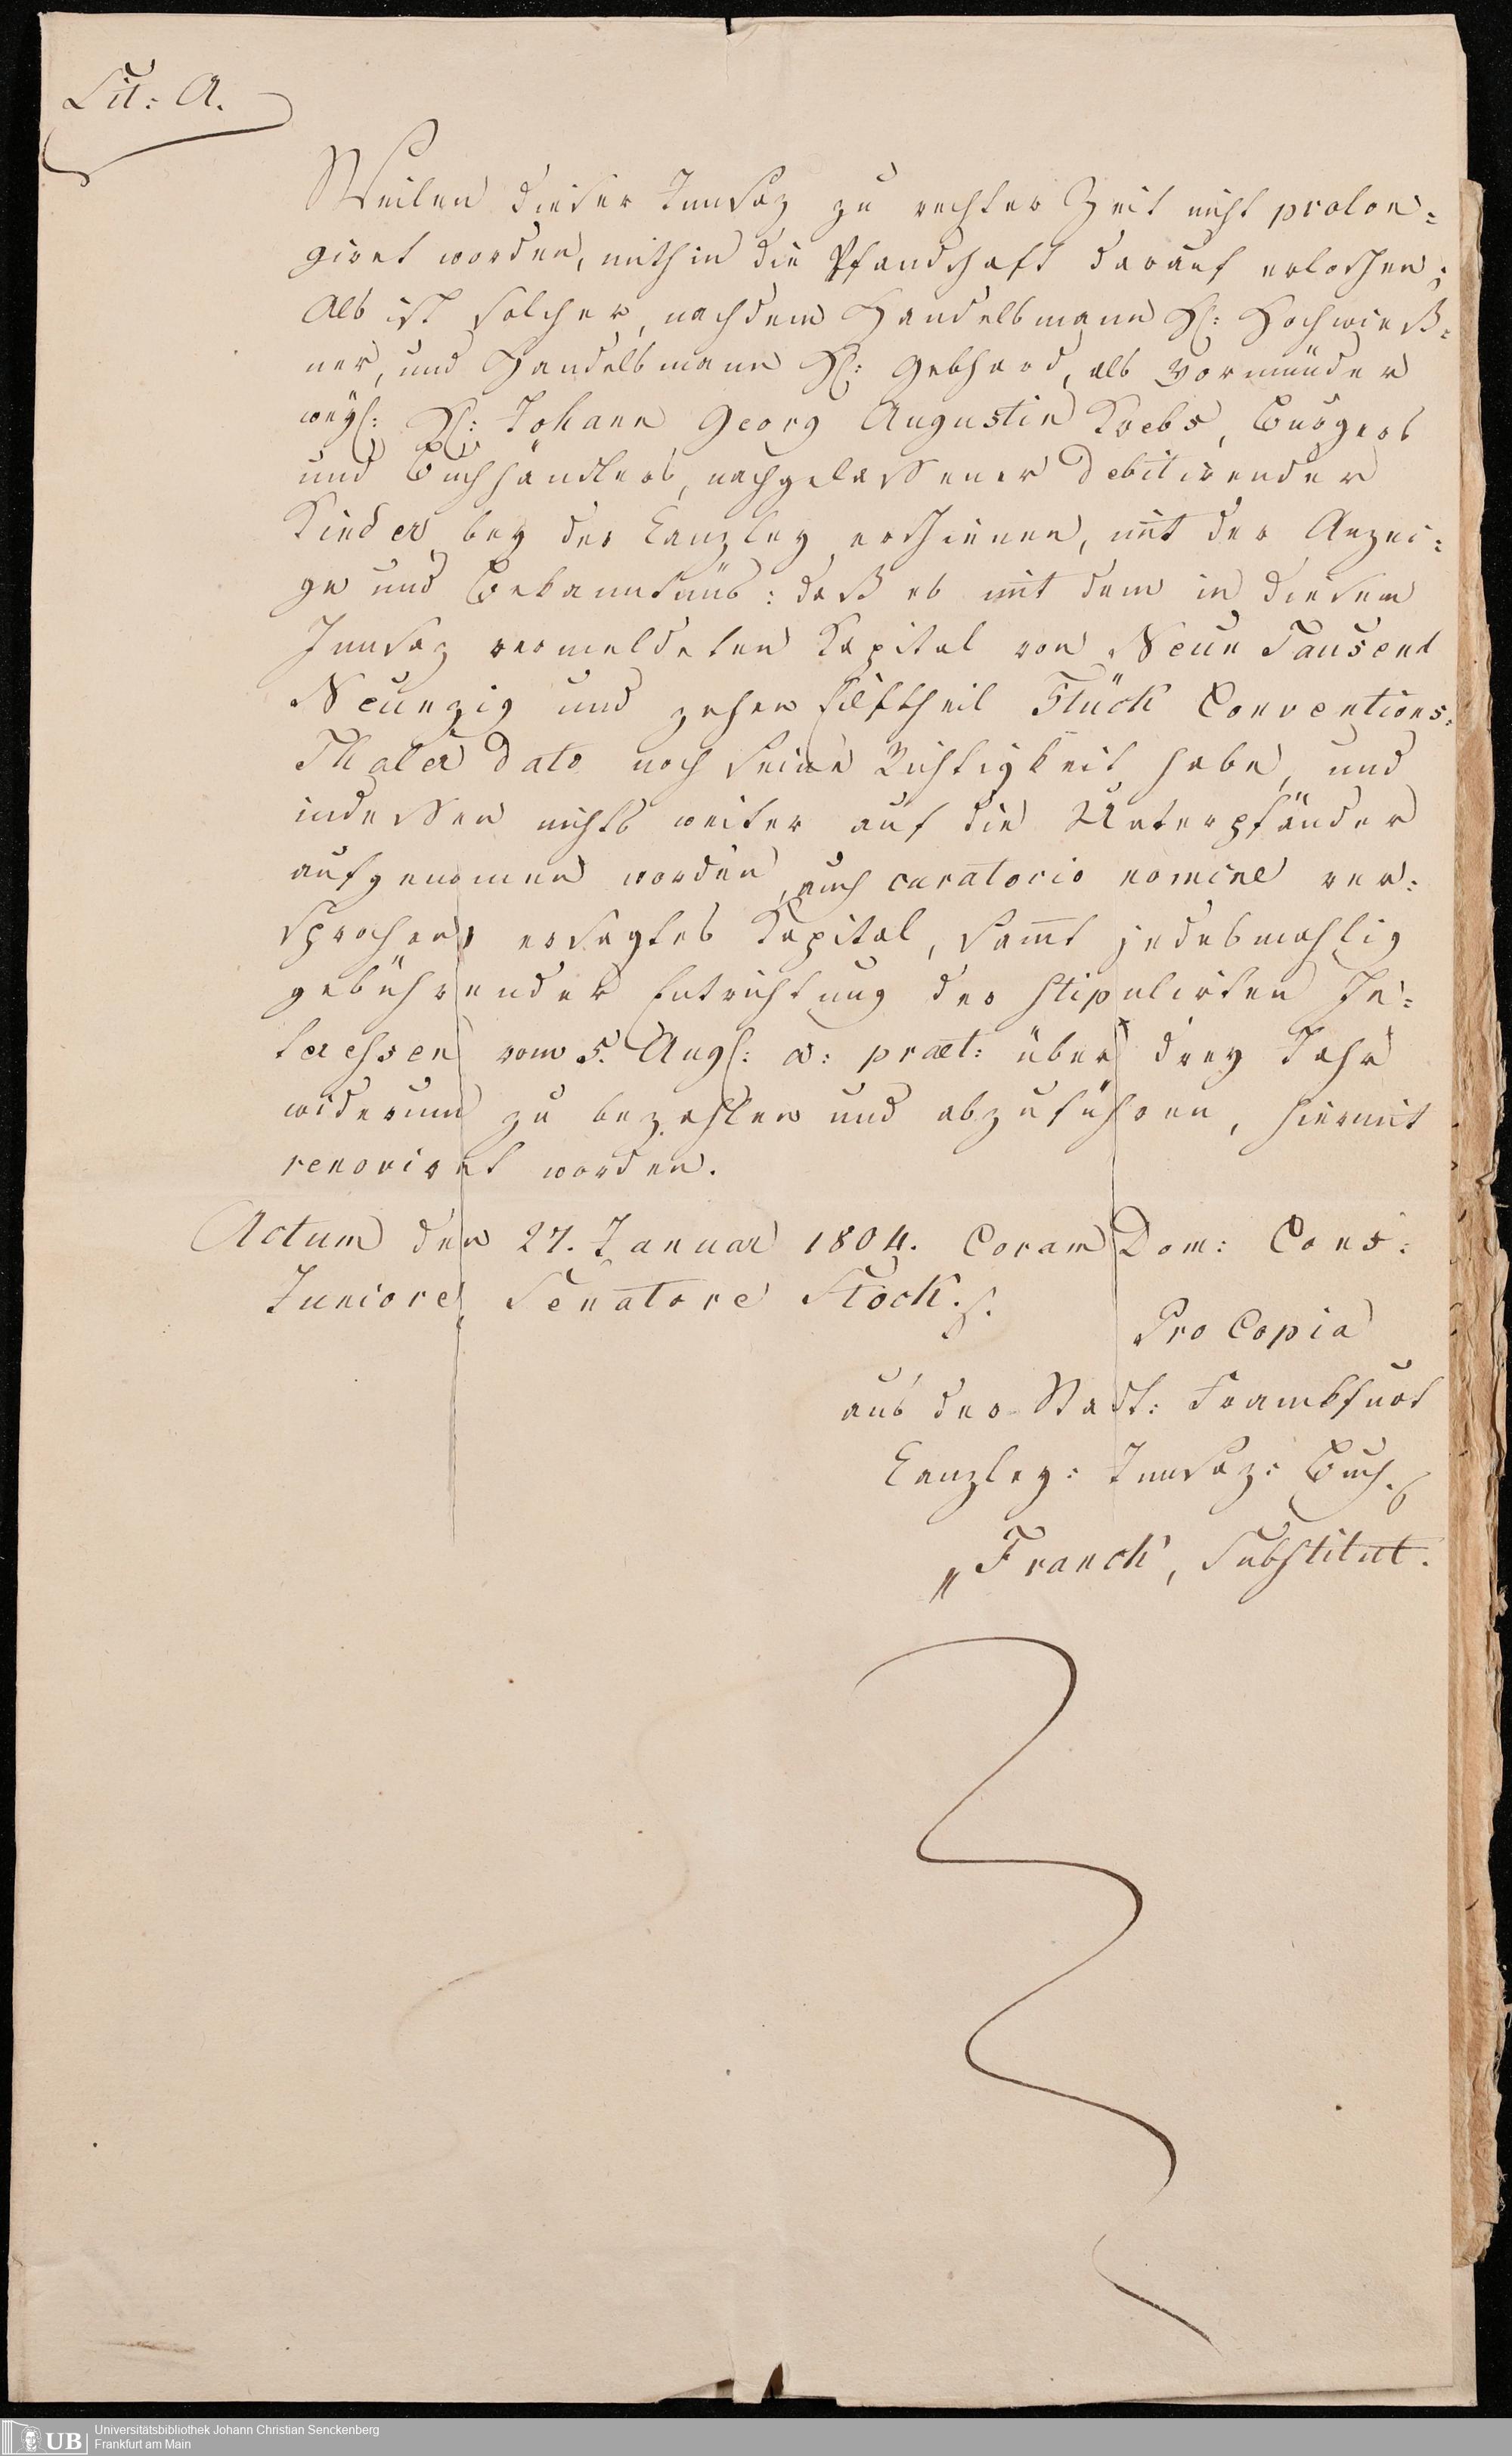 Lit: A.
Weilen dieser Innsaz zu rechter Zeit nicht prolon=
giret worden, mithin die Pfandschaft darauf erloschen;
Als ist solcher, nachdem Handelsmann H: Hochwieß=
ner, und Handelsmann H: Gebhard, als Vormünder
weyl: H: Johann Georg Augustin Krebs, Burgers
und Buchhändlers, nachgelassener debitirender
Kinder bey der Canzley erschienen, mit der Anzei=
ge und Bekanntnüs: daß es mit dem in diesem
Innsaz vermeldeten Kapital von Neun Tausend
Neunzig und zehen Eilftheil Stück Conventions=
Thaler dato noch seine Richtigkeit habe, und
indessen nichts weiter auf die Unterpfänder
aufgenommen worden, auch curatorio nomine ver=
sprochen, ersagtes Kapital, sammt jedesmahlig
gebührender Entrichtung der stipulirten In=
teressen vom 5. Augs: a: præt: über drey Jahr
widerum zu bezahlen und abzuführen, hiermit
renoviret worden.
Actum den 27. Januar 1804. Coram Dom: Cons:
Juniore, Senatore Stock.
Pro Copia
aus der Stadt: Frankfurt
Canzley: Innsaz: Buch.
Franck, Substitut.
UB Universitätsbibliothek Johann Christian Senckenberg
Frankfurt am Main